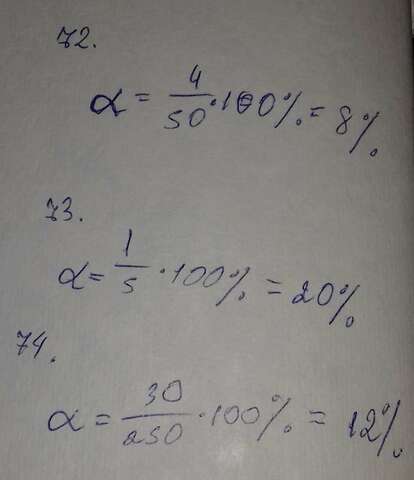 72.
α = 4/50 · 100% = 8%
73.
α = 1/5 · 100% = 20%
74.
α = 30/250 · 100% = 12%